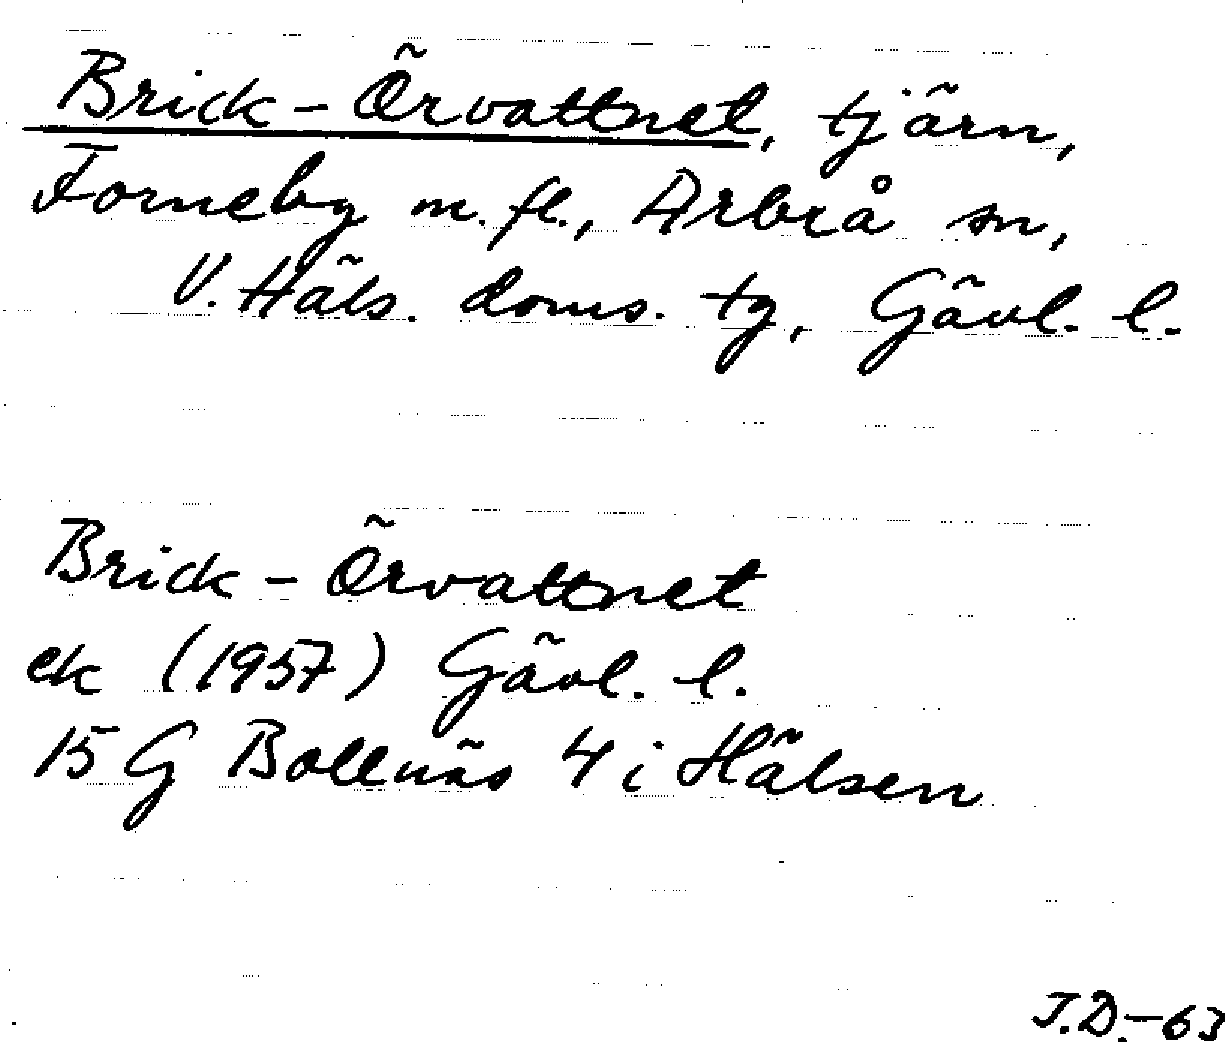 Brick-Örvattnet, tjärn,
Forneby m. fl., Arbrå sn,
V. Häls. doms. tg, Gävl. l.
Brick-Örvattnet
ek (1957) Gävl. l.
15 G Bollnäs 4 i Hälsen
J.D.-63